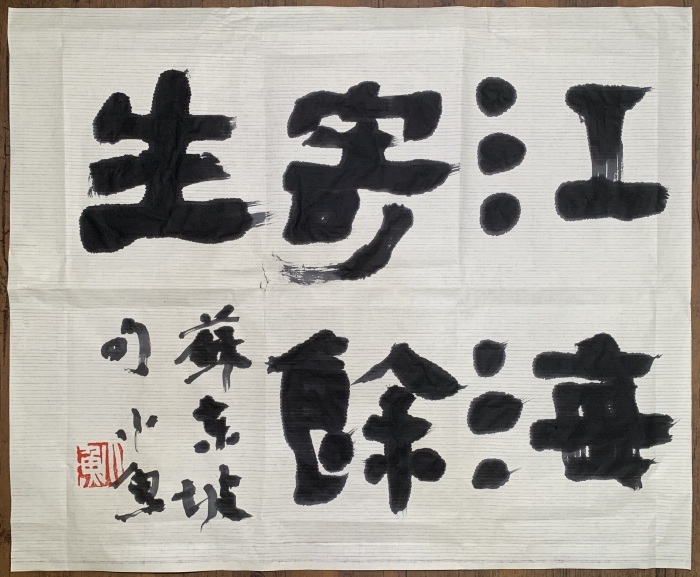 江海
寄餘
生
蘇東坡
句小魚
小魚